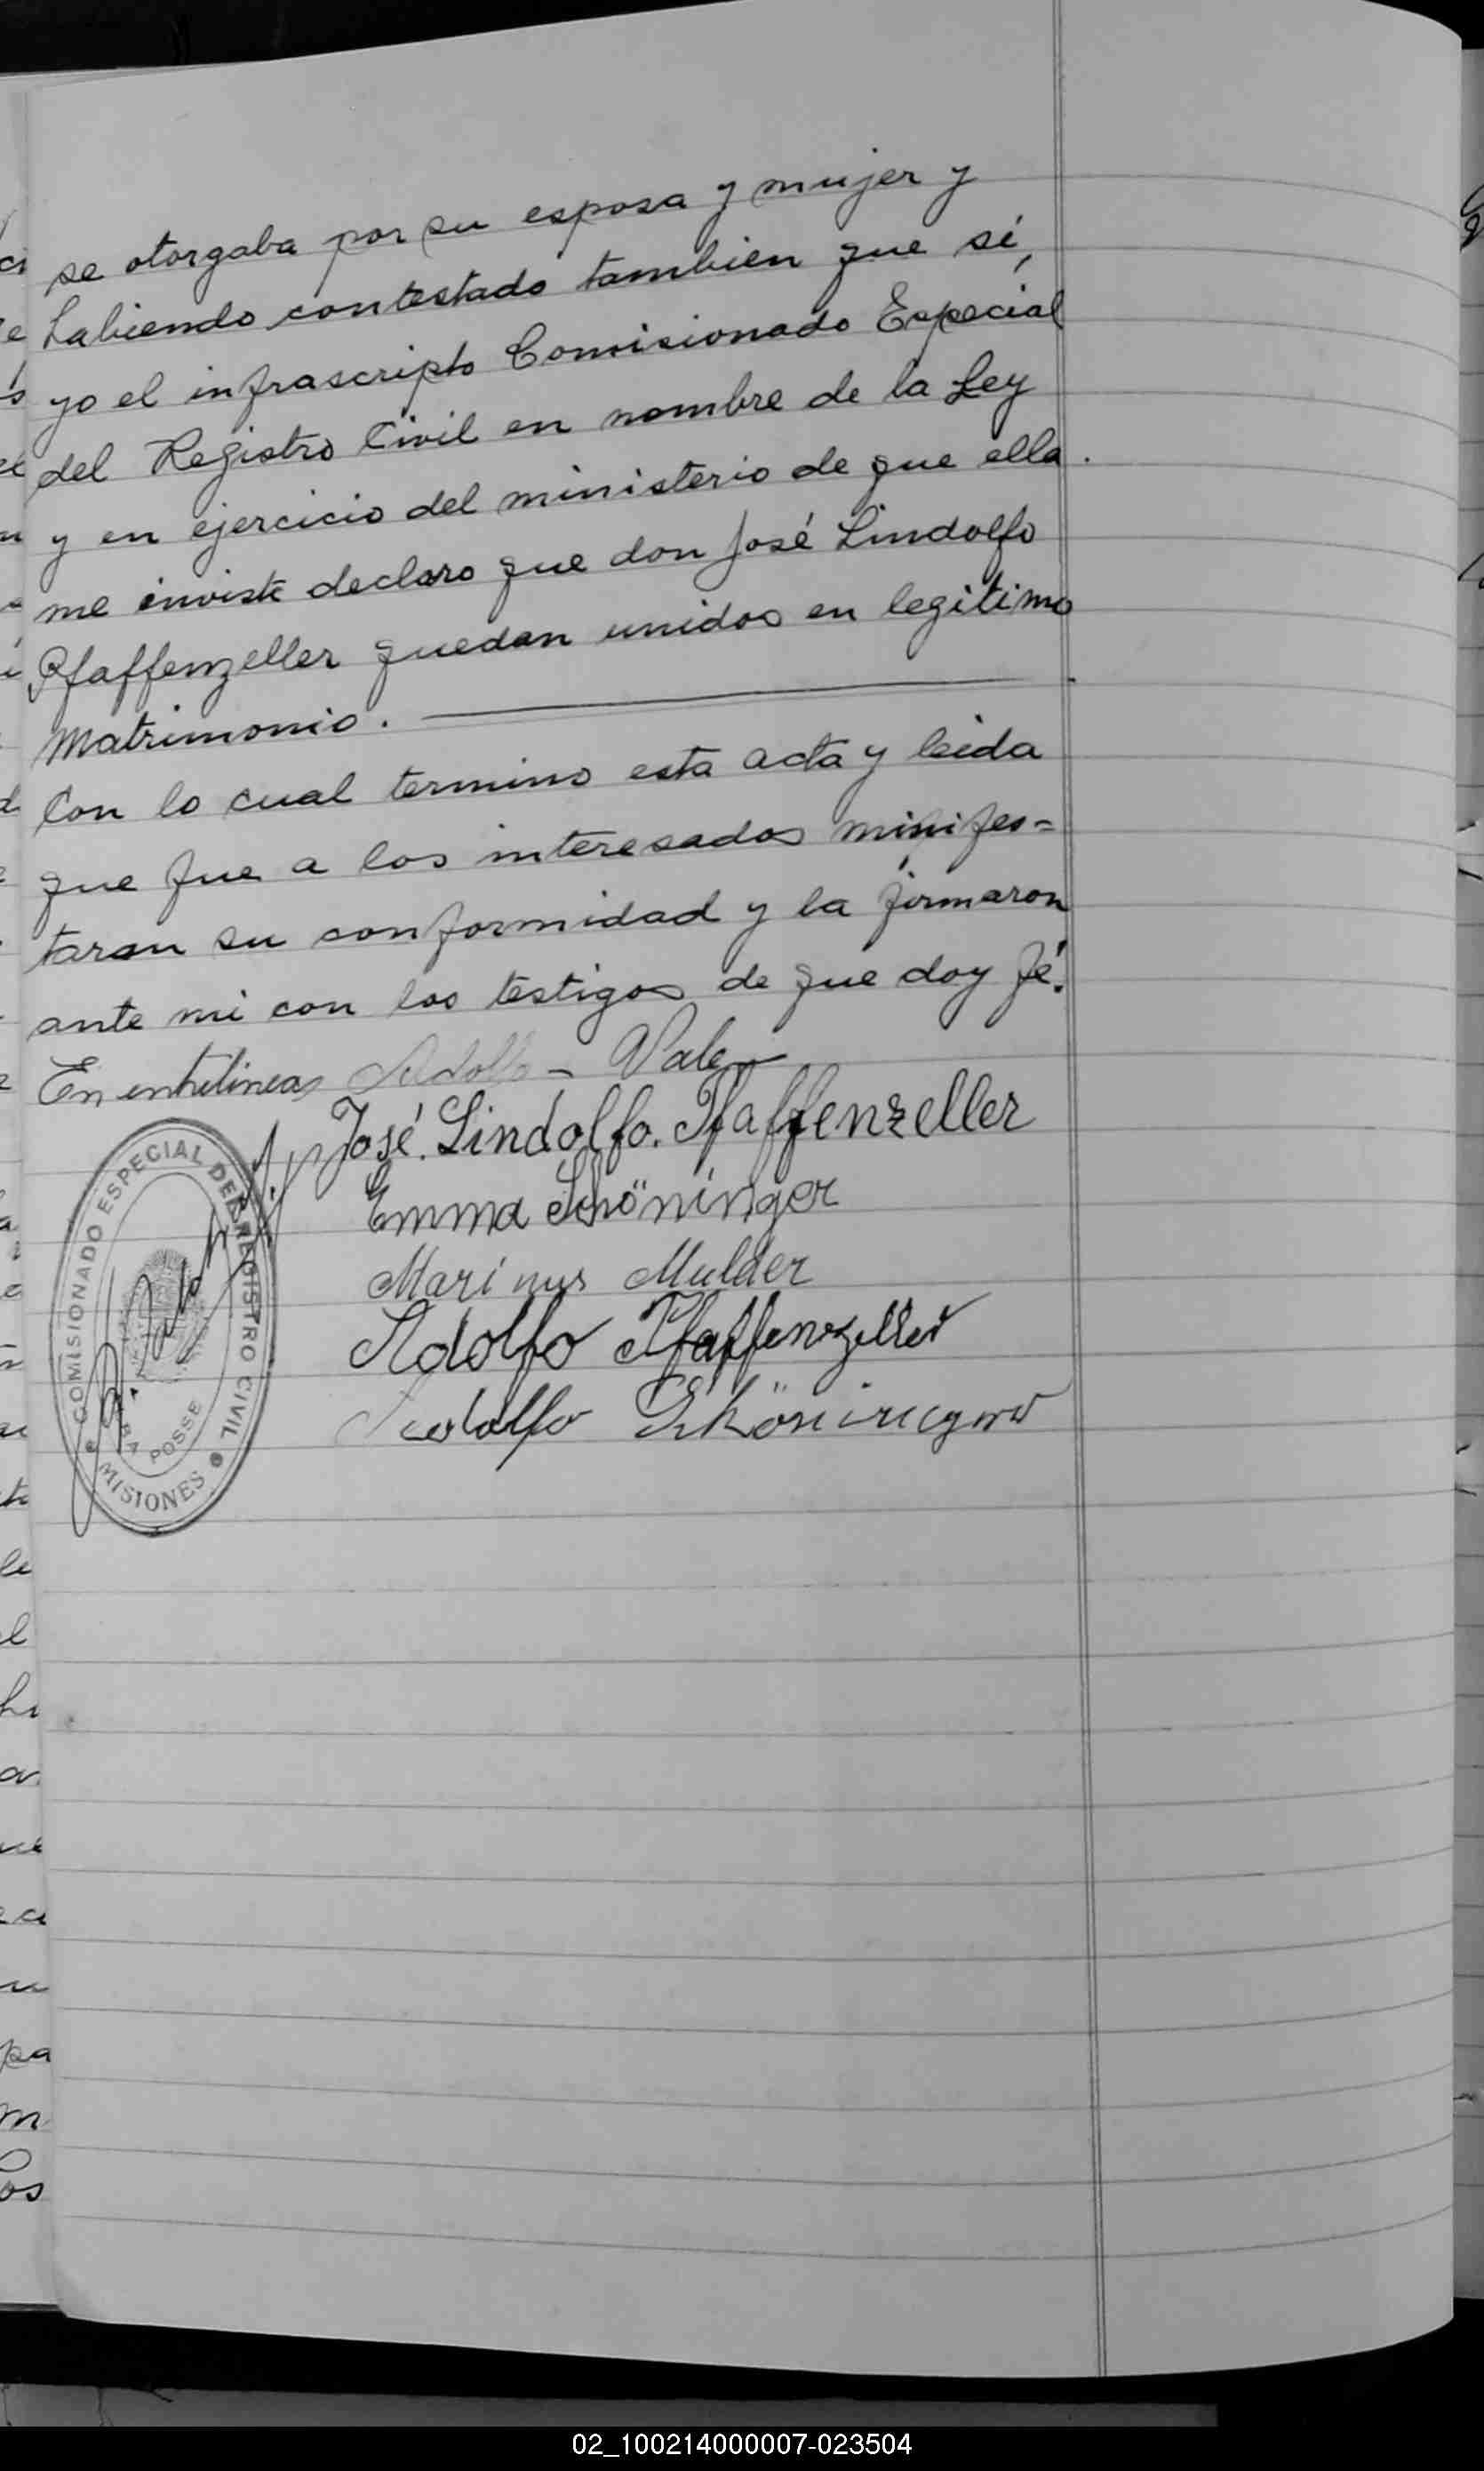 se otorgaba por su esposa y mujer y
habiendo contestado tambien que sí,
yo el infrascripto Comisionado Especial
del Registro Civil en nombre de la Ley
y en ejercicio del ministerio de que ella
me inviste declaro que don José Lindolfo
Pfaffenzeller quedan unidos en legitimo
Matrimonio.
Con lo cual termino esta acta y leida
que fue a los interesados minifes=
taron su conformidad y la firmaron
ante mi con los testigos de que doy fé.
En entrelineas Adolfo - Vale
José. Lindolfo. Pfaffenzeller
Emma Schöninger
Marinus Mulder
Adolfo Pfaffenzeller
COMISIONADO ESPECIAL DEL REGISTRO CIVIL
ALBA POSSE
MISIONES
02_100214000007-023504